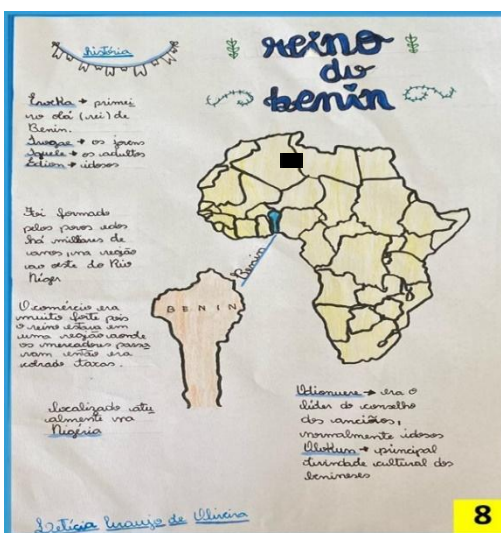 história
reino
do
benin
Eweka → primei
ro obá (rei) de
Benin.
→ os jovens
→ os adultos
Edion → idosos
Foi formado
pelos povos edos
há milhares de
anos, na região
ao oeste do Rio
Níger
O comércio era
muito forte pois
o reino estava em
uma região aonde
os mercadores passa
vam então era
cobrado taxas.
localizado atu
almente na
Nigéria
Benin
BENIN
Odionwere → era o
líder do conselho
dos anciãos,
normalmente idosos
Olokun → principal
divindade cultural dos
benineses
Letícia Araujo de Oliveira
8